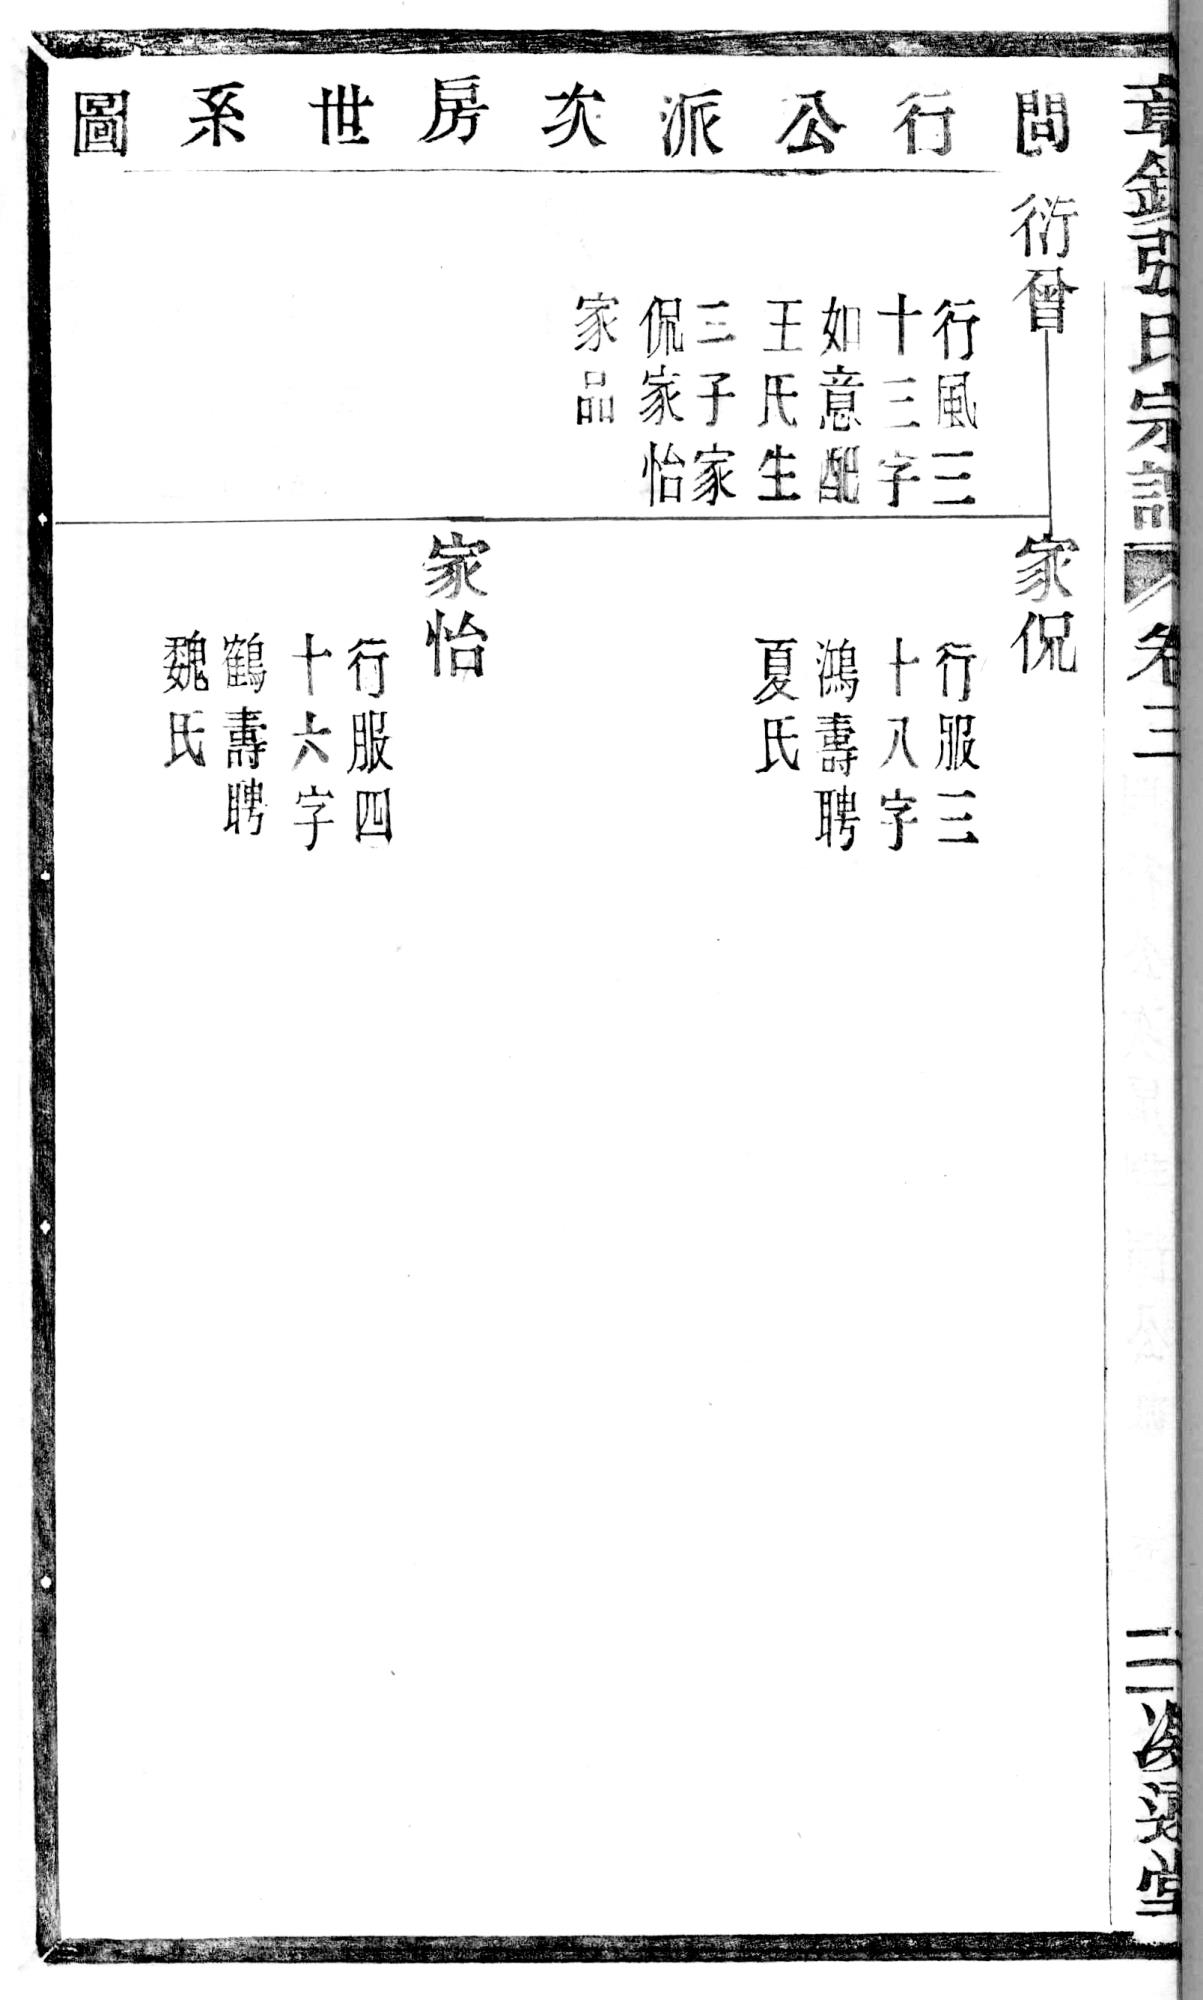 問行公派次房世系圖
衍曾
行風三
十三字
如意配
王氏生
三子家
侃家怡
家品
家侃
行服三
十八字
鴻壽聘
夏氏
家怡
行服四
十六字
鶴壽聘
魏氏
張氏宗譜
卷三
二
堂